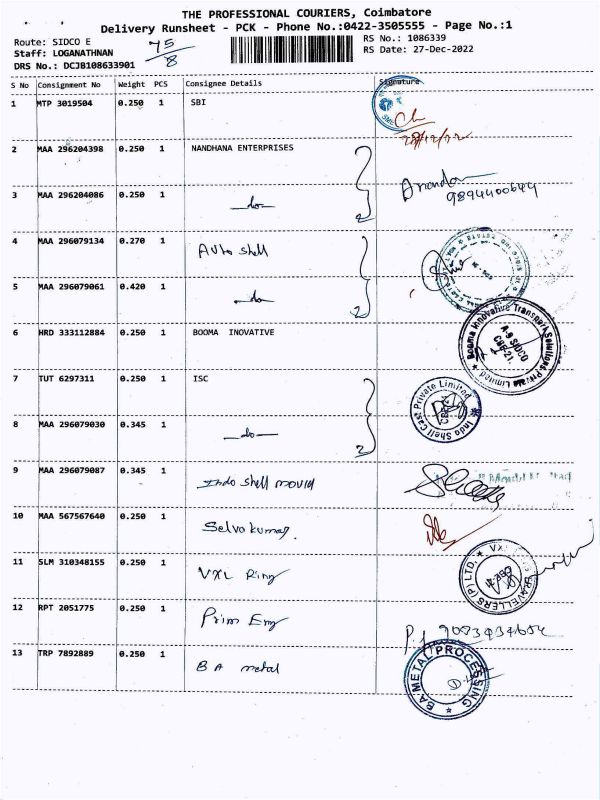 THE PROFESSIONAL COURIERS, Coimbatore
Delivery Runsheet - PCK - Phone No.:0422-3505555 - Page No.:1
Route: SIDCO E
RS No.: 1086339
Staff: LOGANATHNAN
75/8
RS Date: 27-Dec-2022
DRS No.: DCJB108633901
S No Consignment No Weight PCS Consignee Details Signature
1 MTP 3019504 0.250 1 SBI
28/12/22
2 MAA 296204398 0.250 1 NANDHANA ENTERPRISES
Anandan
9894400644
3 MAA 296204086 0.250 1 do
2
4 MAA 296079134 0.270 1 Auto shell
5 MAA 296079061 0.420 1 do
2
6 HRD 333112884 0.250 1 BOOMA INOVATIVE
Booma Innovative Transport Solutions Private Limited
A-9 SIDCO
CBE-21.
7 TUT 6297311 0.250 1 ISC
Indo Shell Cast Private Limited
8 MAA 296079030 0.345 1 do
2
9 MAA 296079087 0.345 1 Indo shell mould
10 MAA 567567640 0.250 1 Selvakumar.
11 SLM 310348155 0.250 1 VXL Ring
VXL TRAVELLERS (P) LTD.
12 RPT 2051775 0.250 1 Prim Eng
13 TRP 7892889 0.250 1 BA metal
BA METAL PROCESSING